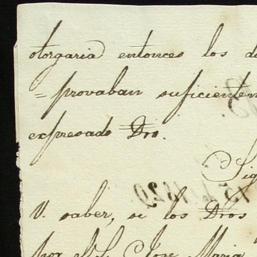 otorgaria entonces los d
= provaban suficientem
expresado Dro.
Sig
V. saber, si los Dros
por D. Jose Maria